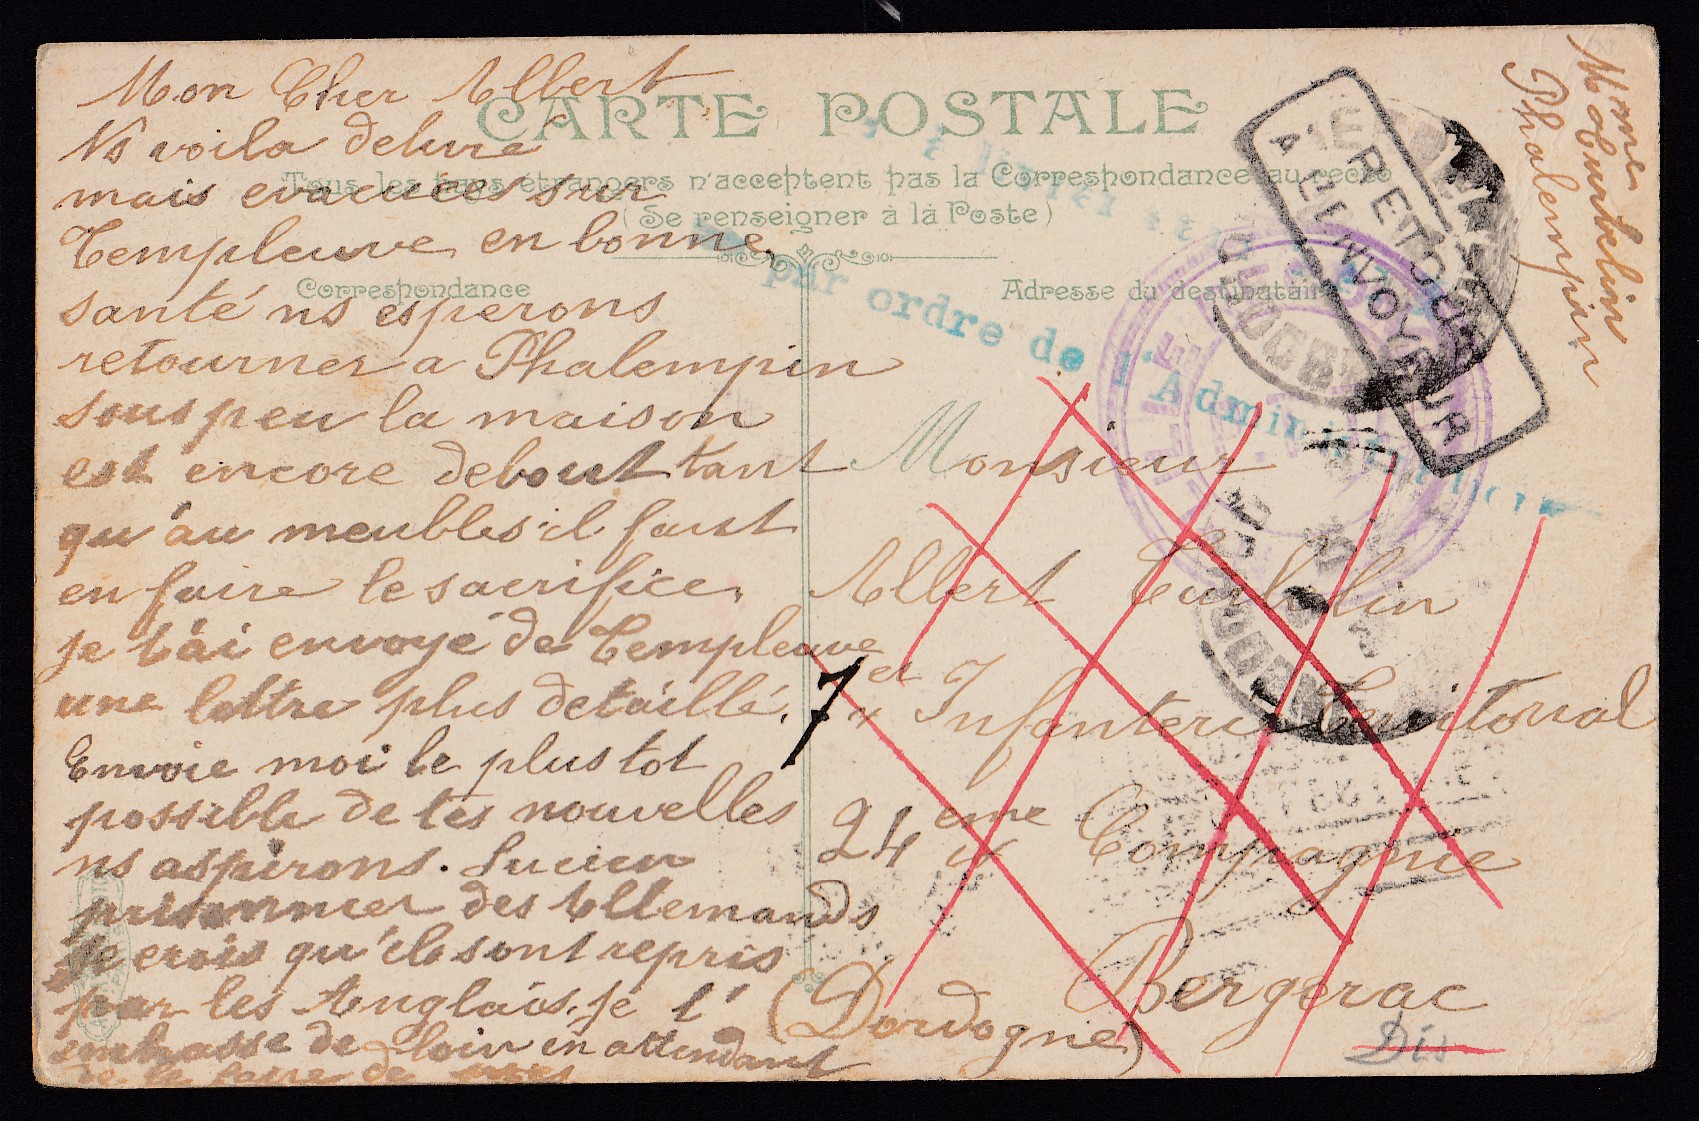 CARTE POSTALE
Tous les pays étrangers n'acceptent pas la Correspondance au recto
(Se renseigner à la Poste)
Correspondance
Adresse du destinataire
Mon Cher Albert
Ns voila delivré
mais evacuées sur
Templeuve en bonne
santé ns esperons
retourner a Phalempin
sous peu la maison
est encore debout tant
qu'au meubles il faut
en faire le sacrifice,
je t'ai envoyé de Templeuve
une lettre plus detaillé.
Envoie moi le plus tot
possible de tes nouvelles
ns aspirons. Lucien
prisonnier des Allemands
je crois qu'ils sont repris
par les Anglais. je t'
embrasse de loin en attendant
de le faire de
Monsieur
Albert
1er Infanterie Territorial
24eme Compagnie
Bergerac
(Dordogne)
Dis
Mme
Phalempin
RETOUR
A L'ENVOYEUR
par ordre de l'Administration